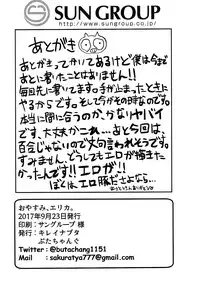 SUN GROUP
http://www.sungroup.co.jp/
あとがき
あとがきって分かってるけど僕は今まで
あとに書いたことはありません!!
毎回先に書いてます。手が止まったときに
やるからです。そして今がその時なのです。
本当に間に合うのか。かなりヤバイ
です、大丈夫かこれ…。あと今回は
百合じゃないので文句言われそうです。
すみません、どうしてもエロが描きた
かったんです!!エロが!!
ぼくは、エロ豚ださよなら…
おやすみ、エリカ。
2017年9月23日発行
印刷:サングループ 様
発行:キレイナブタ
ぶたちゃんぐ
Twitter : @butachang1151
Mail : sakuratya777@gmail.com